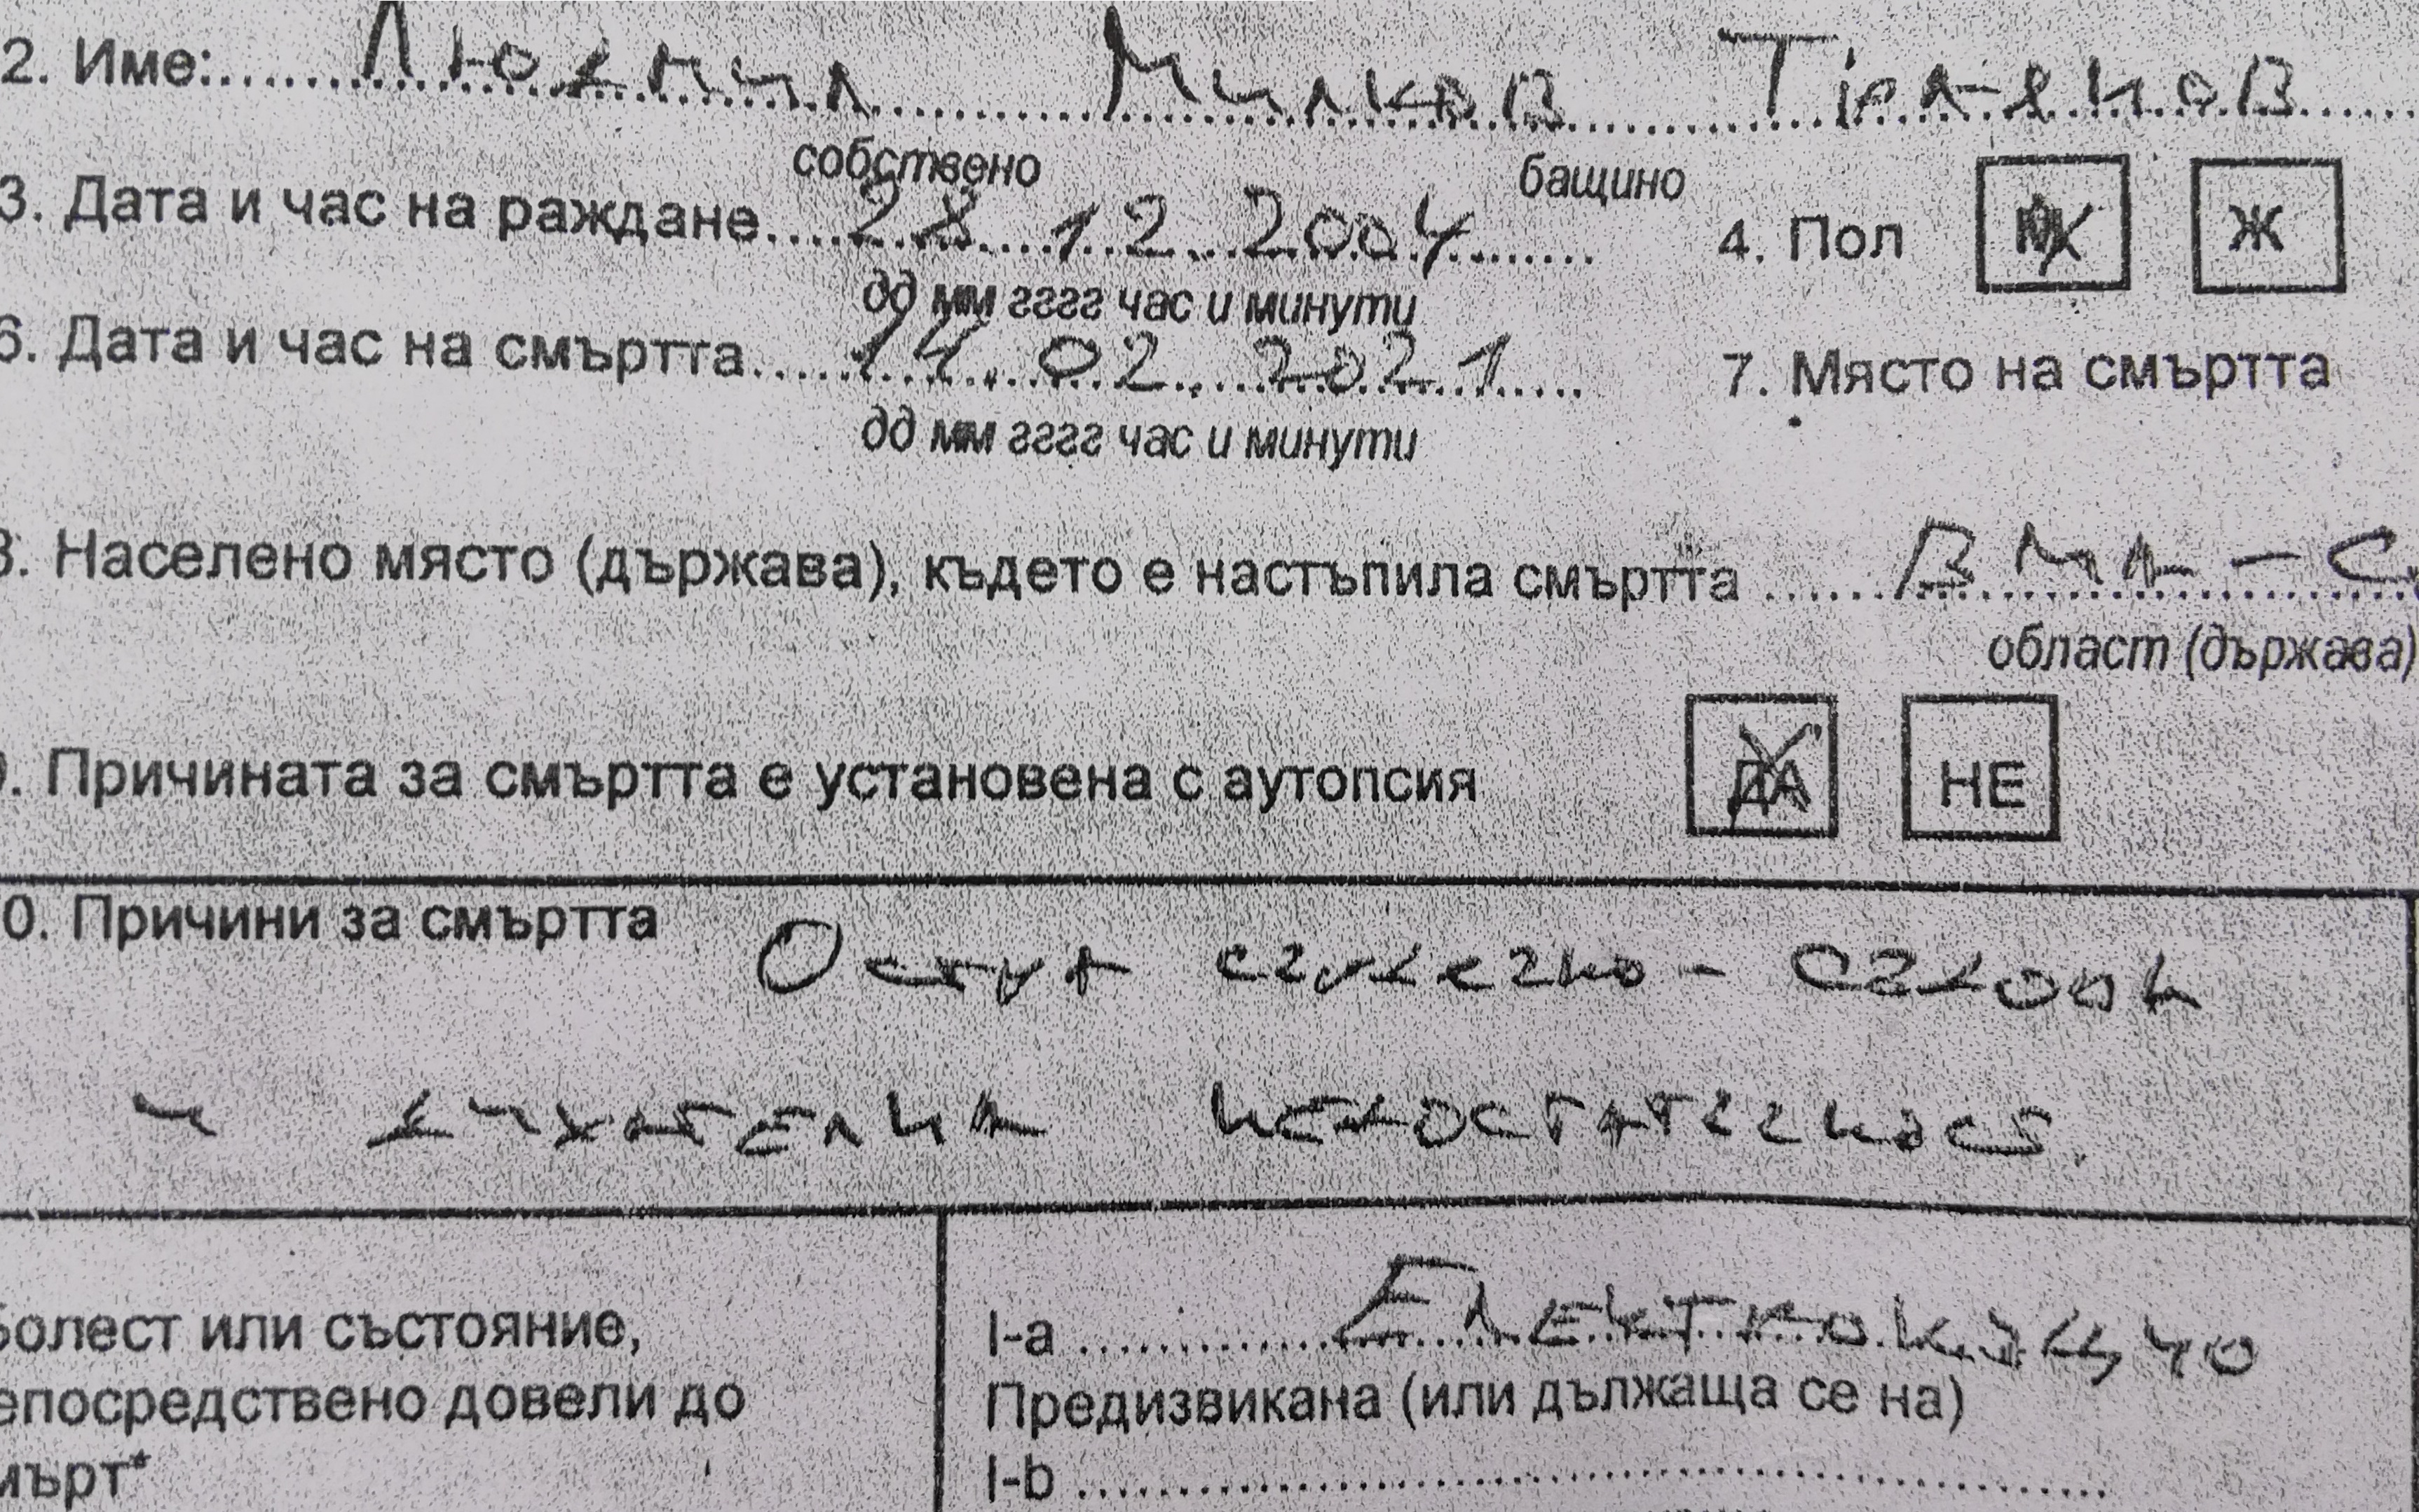 2. Име: Людмил Милков Трайков
собствено бащино
3. Дата и час на раждане 28 12 2004 4. Пол М Ж
дд мм гггг час и минути
6. Дата и час на смъртта 14. 02. 2021 7. Място на смъртта
дд мм гггг час и минути
8. Населено място (държава), където е настъпила смъртта ВМА - С
област (държава)
9. Причината за смъртта е установена с аутопсия ДА НЕ
0. Причини за смъртта сърдечно - съдова
и дихателна недостатъчност.
болест или състояние, I-a
епосредствено довели до Предизвикана (или дължаща се на)
мърт* I-b